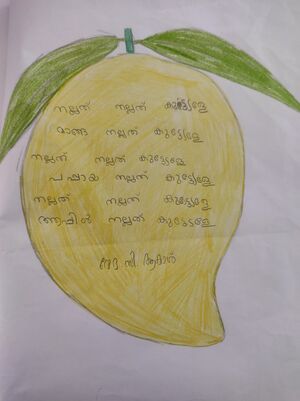 നല്ലത് നല്ലത് കുട്ട്യേളേ
മാങ്ങ നല്ലത് കുട്ട്യേളേ
നല്ലത് നല്ലത് കുട്ട്യേളേ
പപ്പായ നല്ലത് കുട്ട്യേളേ
നല്ലത് നല്ലത് കുട്ട്യേളേ
ആപ്പിൾ നല്ലത് കുട്ട്യേളേ